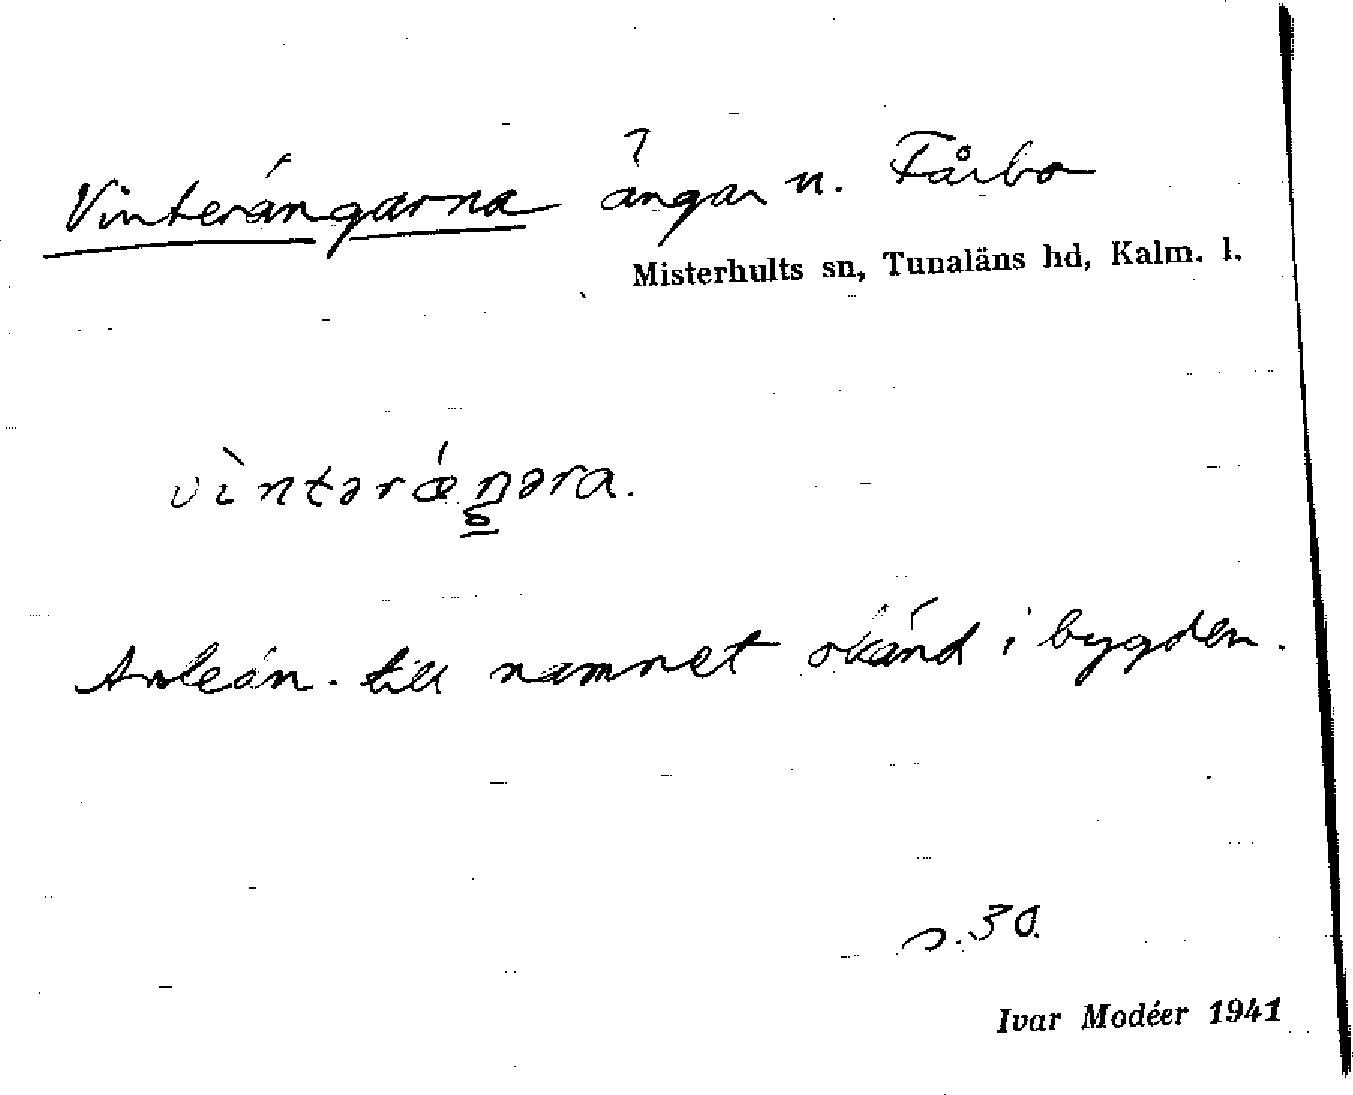 Vinterängarna ängar u. Fårbo
Misterhults sn, Tunaläns hd, Kalm. l.
vìntəráŋəra.
Anledn. till namnet okänd i bygden.
s. 30.
Ivar Modéer 1941